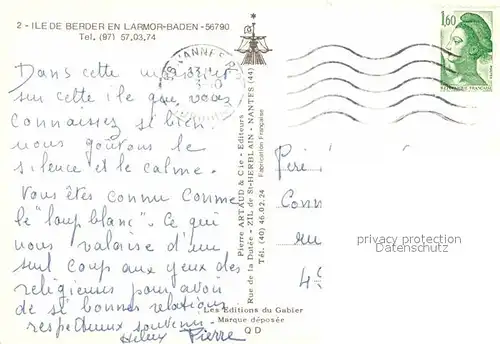 2 - ILE DE BERDER EN LARMOR-BADEN - 56790
Tel. (97) 57.03.74
Dans cette
sur cette ile que vous
connaissez si bien
nous goûtons le
silence et le calme.
Vous êtes connu comme
le "loup blanc". Ce qui
nous valaise d'un
seul coup aux yeux des
religieuses pour avoir
de si bonnes relations
respectueux souvenir.
Pierre
VANNES
1,60
REPUBLIQUE FRANÇAISE
Pierre ARTAUD & Cie - Editeurs
Rue de la Dutée - ZIL de St-HERBLAIN - NANTES (44)
Tél. (40) 46.02.24 Fabrication Française
Péré
Conn
ru
privacy protection
Datenschutz
Les Editions du Gabier
Marque déposée
QD